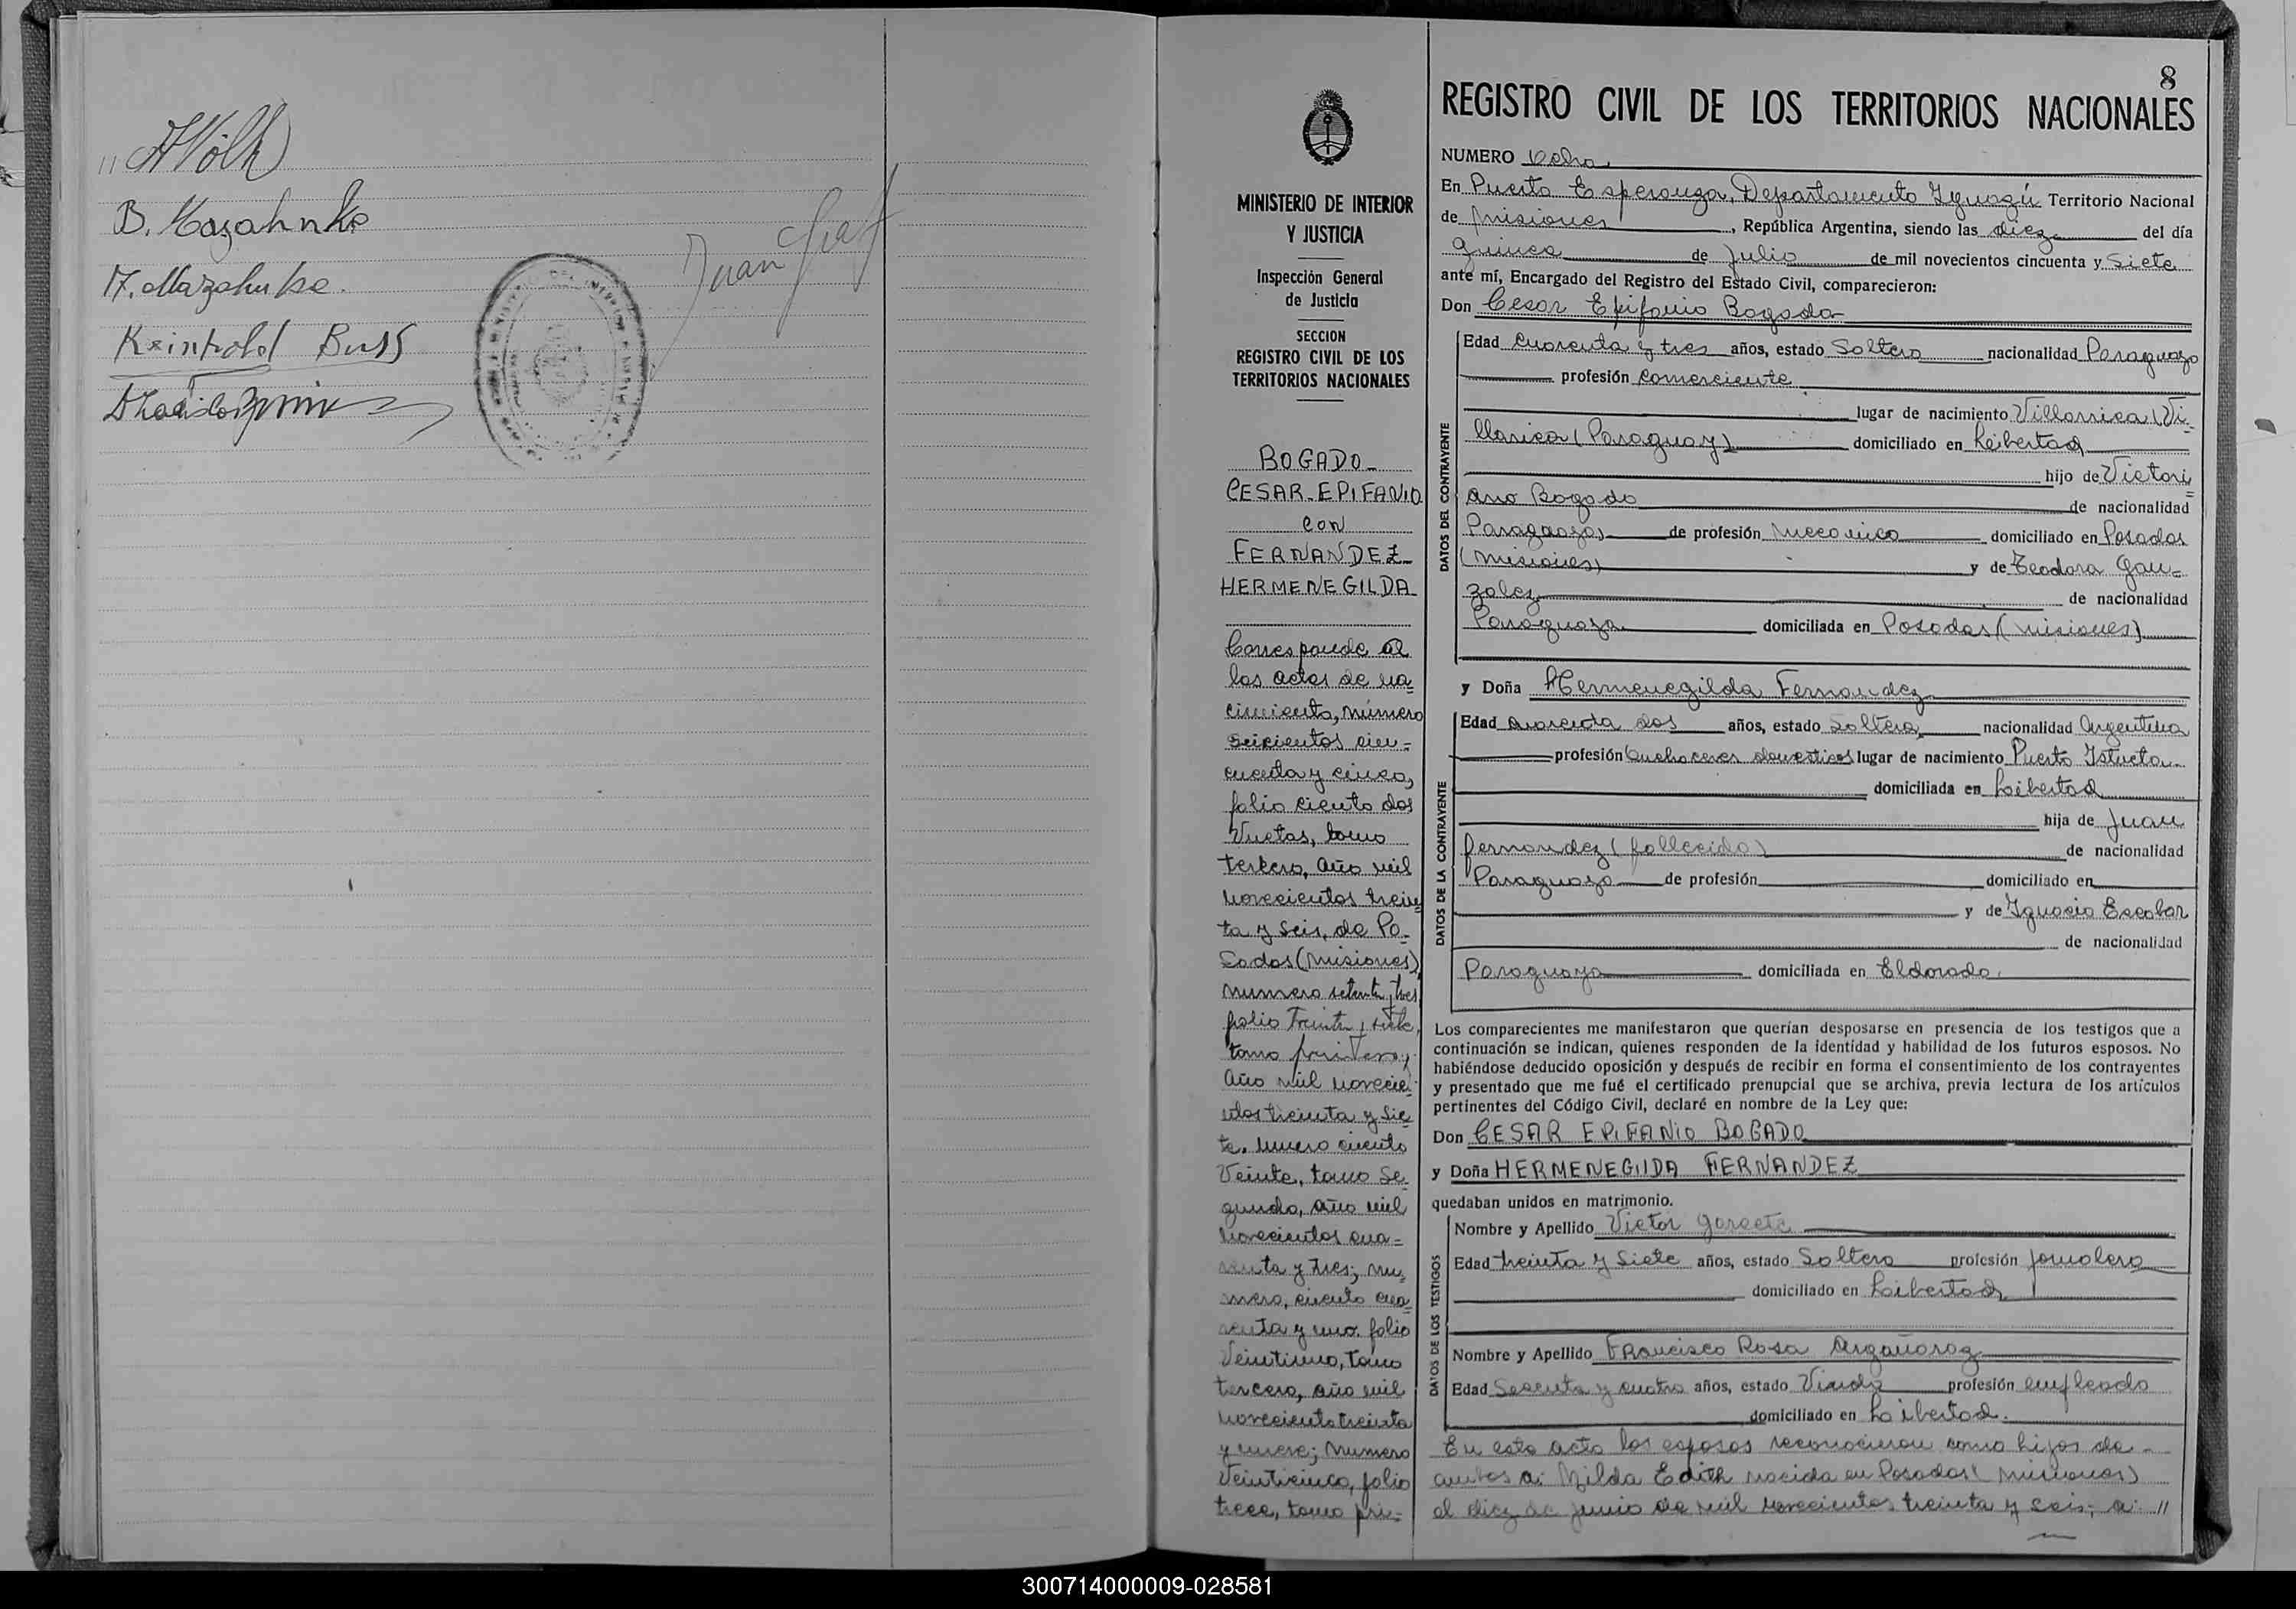 " AWolk
B. Mazahnke
M. Mazahnke.
Reinhold Buss
Juan Graf
8
REGISTRO CIVIL DE LOS TERRITORIOS NACIONALES
MINISTERIO DE INTERIOR
Y JUSTICIA
Inspección General
de Justicia
SECCION
REGISTRO CIVIL DE LOS
TERRITORIOS NACIONALES
BOGADO
CESAR-EPIFANIO
con
FERNANDEZ
HERMENEGILDA
Corresponde al
las actas de na=
cimiento, número
seicientos cin=
cuenta y cinco,
folio ciento dos
Vueltas, tomo
tercero, año mil
novecientos trein=
ta y seis, de Po=
sadas (Misiones)
numero setenta y tres
folio treinta y siete,
tomo primero,
año mil novecie-
ntos treinta y sie
te. numero ciento
Veinte, tomo se
gundo, año mil
novecientos cua=
renta y tres; nu=
mero, ciento cua=
renta y uno. folio
Veintiuno, tomo
tercero, año mil
novecientos treinta
y nueve; numero
Veinticinco, folio
trece, tomo pri=
NUMERO Ocho.
En Puerto Esperanza, Departamento Iguazú Territorio Nacional
de Misiones, República Argentina, siendo las diez del día
quince de Julio de mil novecientos cincuenta y Siete
ante mí, Encargado del Registro del Estado Civil, comparecieron:
Don Cesar Epifanio Bogado
DATOS DEL CONTRAYENTE
Edad cuarenta y tres años, estado Soltero nacionalidad Paraguayo
profesión comerciante
lugar de nacimiento Villarrica (Vi=
llarica (Paraguay) domiciliado en Libertad
hijo de Victori=
ano Bogado de nacionalidad
Paraguayo de profesión mecanico domiciliado en Posadas
(Misiones) y de Teodora Gon=
zalez de nacionalidad
Paraguaya domiciliada en Posadas (Misiones)
y Doña Hermenegilda Fernandez
DATOS DE LA CONTRAYENTE
Edad cuarenta dos años, estado Soltera nacionalidad Argentina
profesión Quehaceres domesticos lugar de nacimiento Puerto
domiciliada en Libertad
hija de Juan
Fernandez (fallecido) de nacionalidad
Paraguayo de profesión domiciliado en
y de Ignacia Escobar
de nacionalidad
Paraguaya domiciliada en Eldorado.
Los comparecientes me manifestaron que querían desposarse en presencia de los testigos que a
continuación se indican, quienes responden de la identidad y habilidad de los futuros esposos. No
habiéndose deducido oposición y después de recibir en forma el consentimiento de los contrayentes
y presentado que me fué el certificado prenupcial que se archiva, previa lectura de los artículos
pertinentes del Código Civil, declaré en nombre de la Ley que:
Don CESAR EPIFANIO BOGADO
y Doña HERMENEGILDA FERNANDEZ
quedaban unidos en matrimonio.
DATOS DE LOS TESTIGOS
Nombre y Apellido Victor Garcete
Edad treinta y Siete años, estado Soltero profesión jornalero
domiciliado en Libertad
Nombre y Apellido Francisco Rosa Argañaraz
Edad Sesenta y cuatro años, estado Viudo profesión empleado
domiciliado en Libertad.
En este acto los esposos reconocieron como hijos de
ambos a: Nilda Edith nacida en Posadas (Misiones)
el diez de junio de mil novecientos treinta y seis; a: //
300714000009-028581